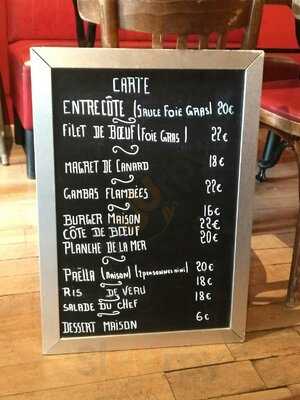 CARTE
ENTRECÔTE (SAUCE FOIE GRAS) 20€
FILET DE BŒUF (FOIE GRAS) 22€
MAGRET DE CANARD 18€
GAMBAS FLAMBÉES 22€
BURGER MAISON 16€
CÔTE DE BŒUF 22€
PLANCHE DE LA MER 20€
PAËLLA (MAISON) (2 PERSONNES MINI) 20€
RIS DE VEAU 18€
SALADE DU CHEF 18€
DESSERT MAISON 6€